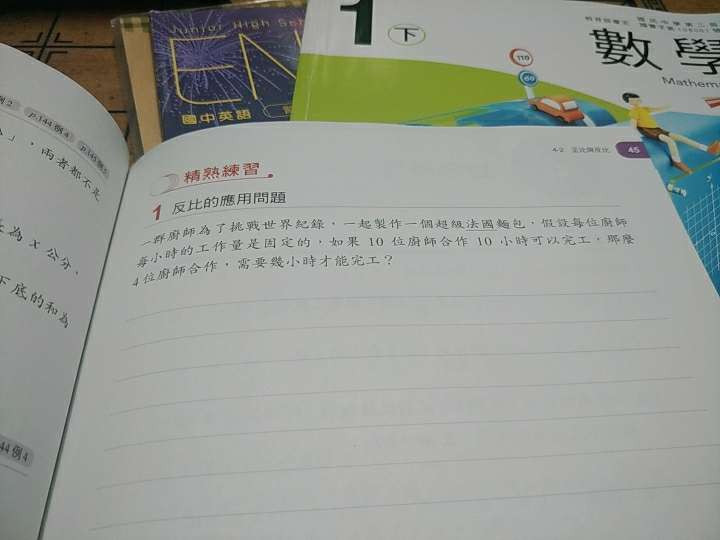 1
下
數學
Junior High Sch
EN
國中英語
110
60
例2 p.144例4 p.145例5
」，兩者都不是
為 x 公分，
下底的和為
44例4
4-2 正比與反比 45
精熟練習
1 反比的應用問題
一群廚師為了挑戰世界紀錄，一起製作一個超級法國麵包，假設每位廚師
每小時的工作量是固定的，如果 10 位廚師合作 10 小時可以完工，那麼
4 位廚師合作，需要幾小時才能完工？